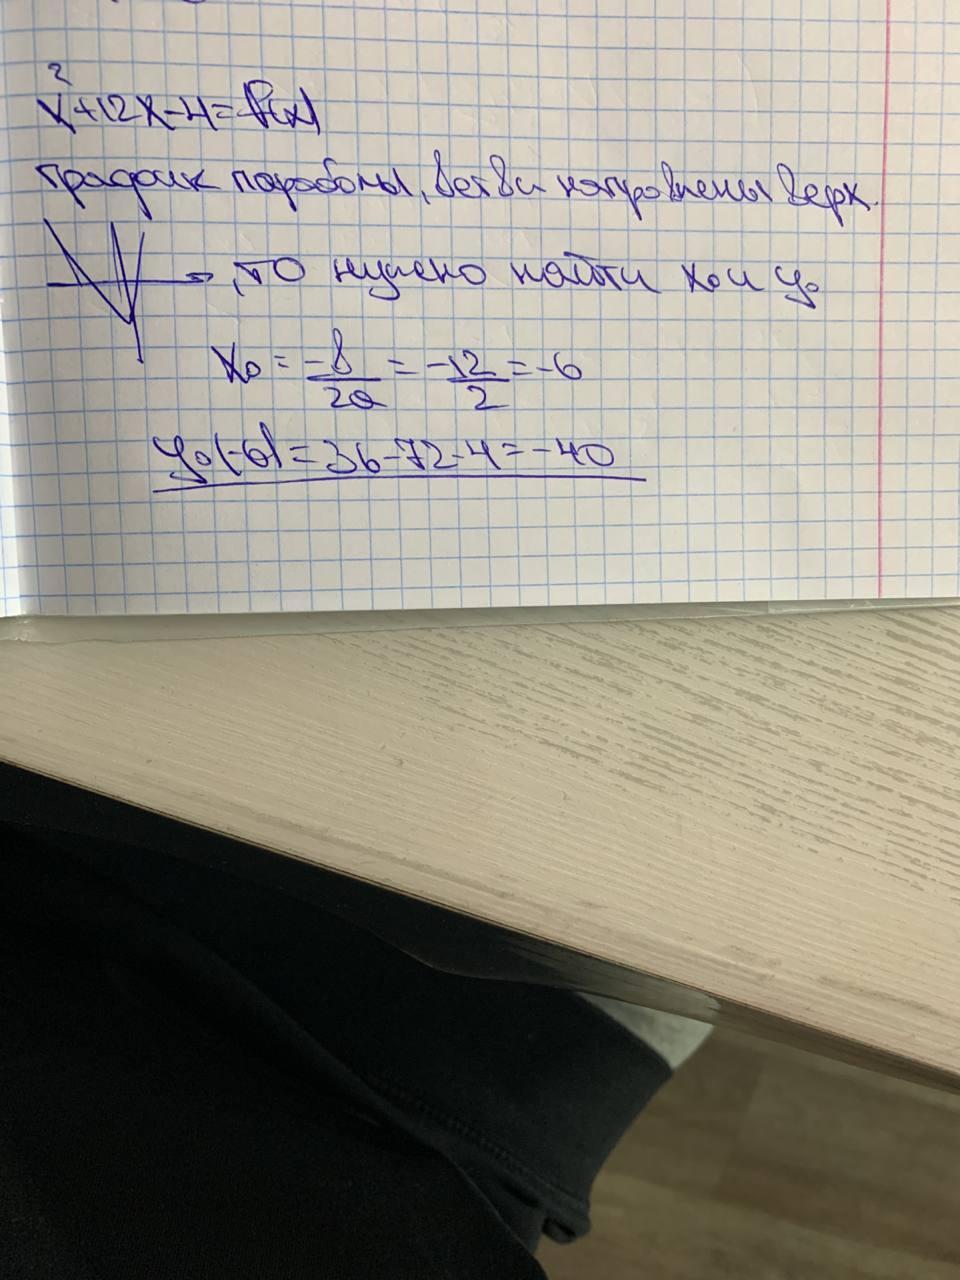 x²+12x-4=f(x)
График параболы, ветви направлены верх.
, то нужно найти x₀ и y₀
x₀ = -в/2a = -12/2 = -6
y₀(-6)=36-72-4=-40